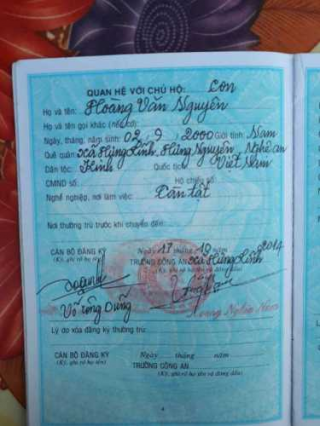 QUAN HỆ VỚI CHỦ HỘ: Con
Họ và tên: Hoàng Văn Nguyên
Họ và tên gọi khác (nếu có):
Ngày, tháng, năm sinh: 02 / 9 / 2000 Giới tính: Nam
Quê quán: Xã Hưng Lĩnh, Hưng Nguyên, Nghệ an
Dân tộc: Kinh Quốc tịch: Việt Nam
CMND số: Hộ chiếu số:
Nghề nghiệp, nơi làm việc: Tàn tật
Nơi thường trú trước khi chuyển đến:
Ngày 17 tháng 12 năm 2014
CÁN BỘ ĐĂNG KÝ TRƯỞNG CÔNG AN: Xã Hưng Lĩnh
(Ký, ghi rõ họ tên) (Ký, ghi rõ họ tên và đóng dấu)
Võ Trọng Dũng
Lý do xóa đăng ký thường trú:
Ngày tháng năm
CÁN BỘ ĐĂNG KÝ TRƯỞNG CÔNG AN
(Ký, ghi rõ họ tên) (Ký, ghi rõ họ tên và đóng dấu)